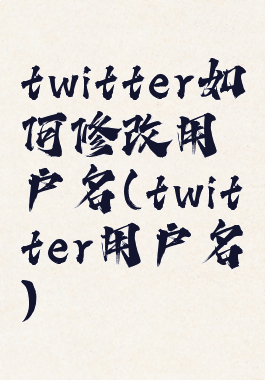 twitter如
何修改用
户名(twit
ter用户名
)